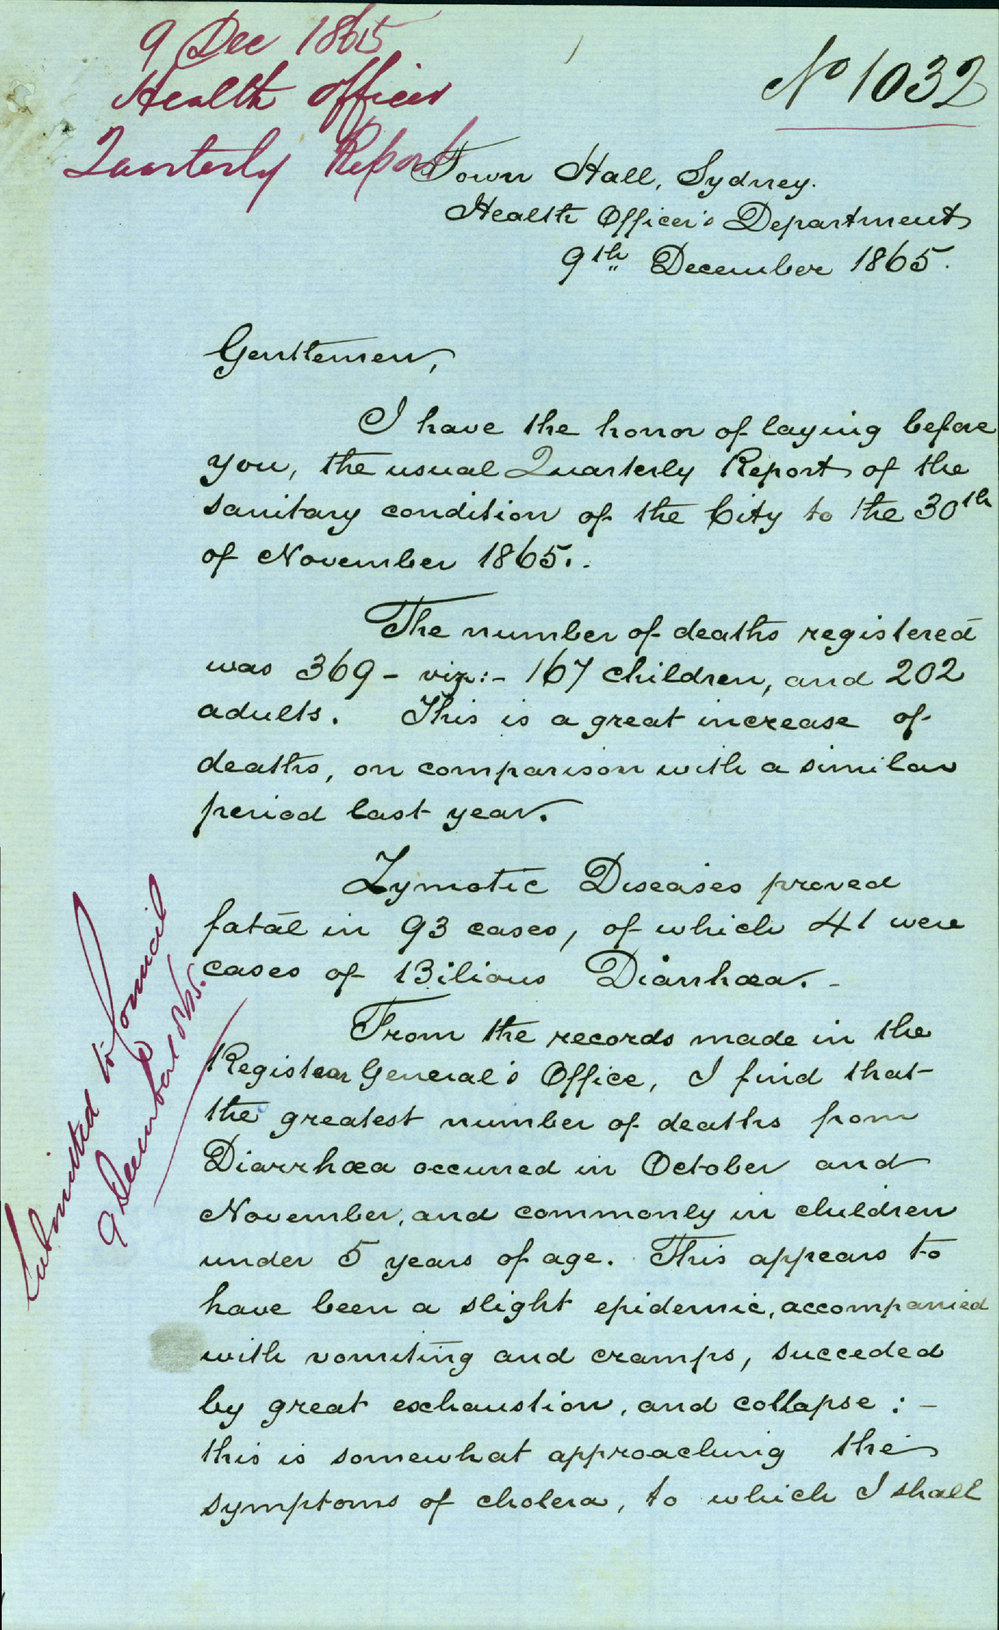 9 Dec 1865
Health officer
Quarterly Report
No 1032
Town Hall, Sydney.
Health Officer's Department
9th December 1865.
Gentlemen,
I have the honor of laying before
you, the usual Quarterly Report of the
sanitary condition of the City to the 30th
of November 1865..
The number of deaths registered
was 369 – viz:– 167 children, and 202
adults. This is a great increase of
deaths, on comparison with a similar
period last year.
Zymotic Diseases proved
fatal in 93 cases, of which 41 were
cases of Bilious Diarrhœa. –
From the records made in the
Registrar General's Office, I find that
the greatest number of deaths from
Diarrhœa occurred in October and
November, and commonly in children
under 5 years of age. This appears to
have been a slight epidemic, accompanied
with vomiting and cramps, succeded
by great exhaustion, and collapse : –
this is somewhat approaching the
symptoms of cholera, to which I shall
Submitted to Council
9 December 1865.